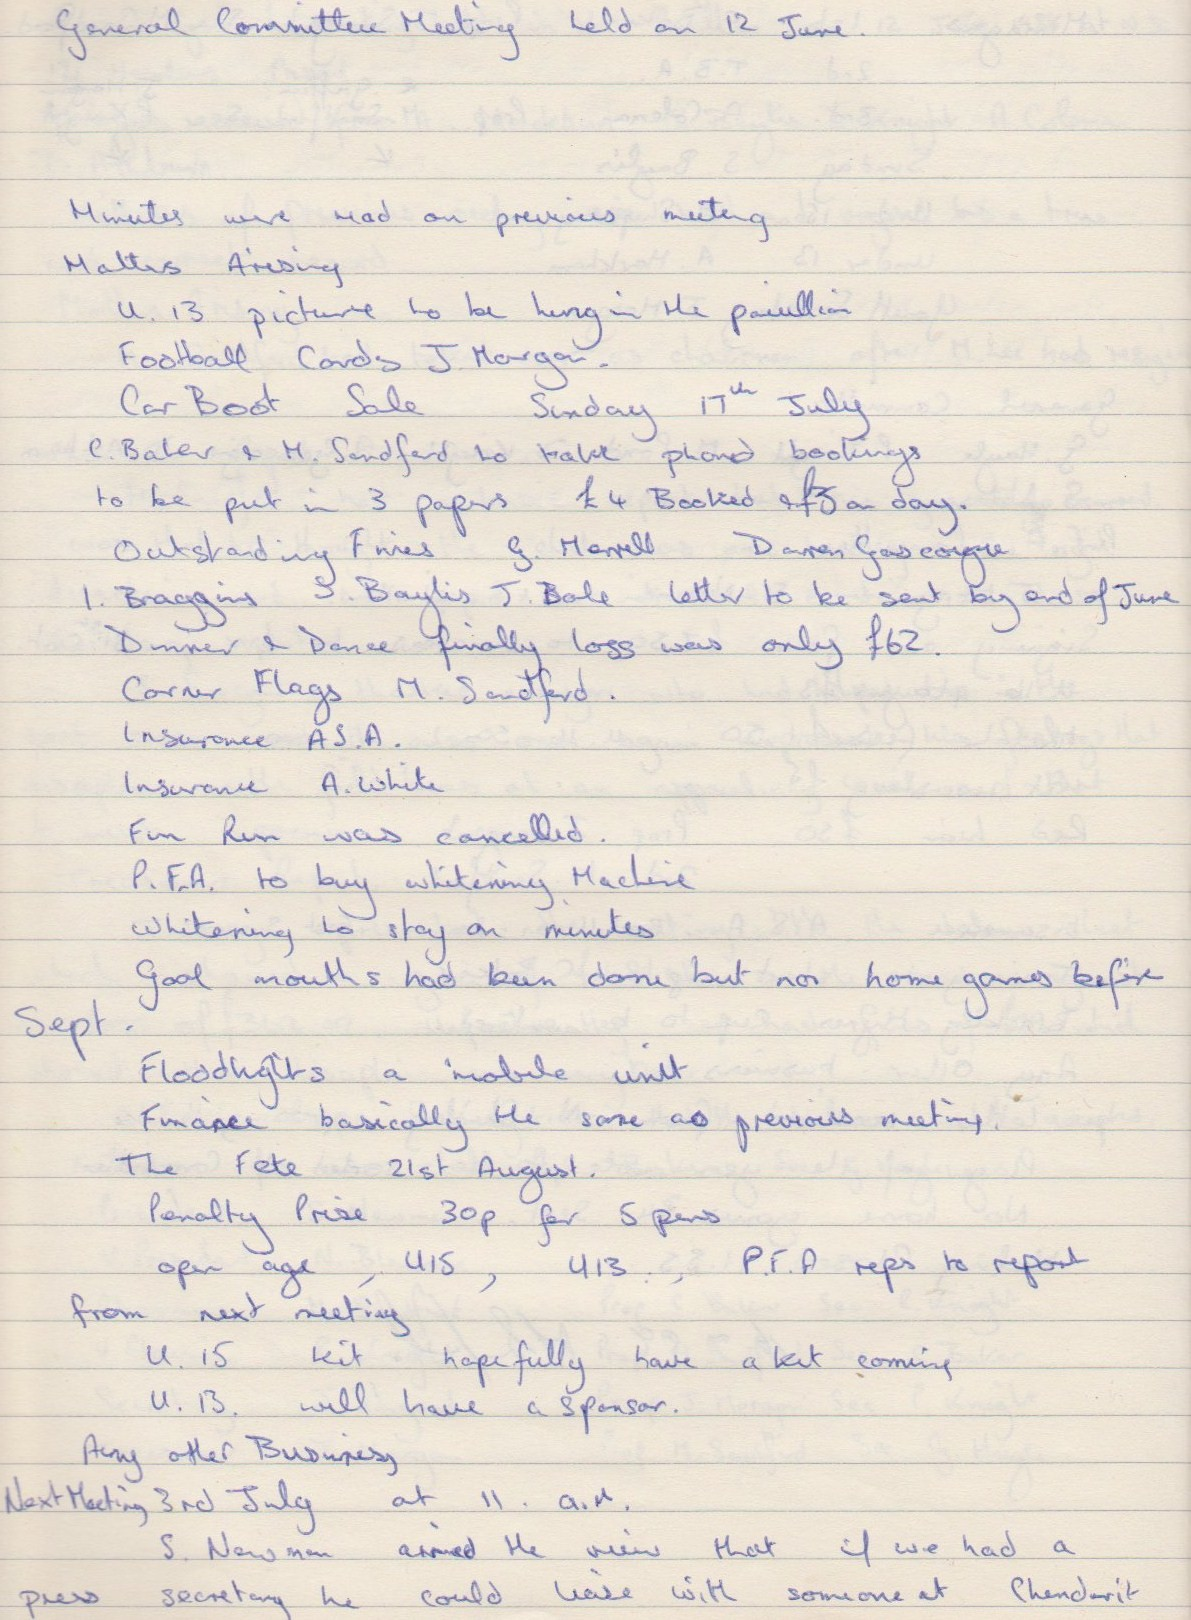 General Committee Meeting held on 12 June.
Minutes were read on previous meeting
Matters Airesing
U. 13 picture to be hung in the pavillion
Football Cards J. Morgan.
Car Boot Sale Sunday 17th July
C. Baker & M. Sandford to take phone bookings
to be put in 3 papers £4 Booked & £5 on day.
Outstanding Fines G. Merrell Darren Gascoyne
I. Braggins S. Baylis J. Bale letter to be sent by end of June
Dinner & Dance finally loss was only £62.
Corner Flags M. Sandford.
Insurance A.S.A.
Insurance A. White
Fun Run was cancelled.
P.F.A. to buy whitening Machine
Whitening to stay on minutes
Goal mouths had been done but no home games before
Sept.
Floodlights a mobile unit
Finance basically the same as previous meeting.
The Fete 21st August.
Penalty Prise 30p for 5 pens
open age, U15, U13, P.F.A reps to report
from next meeting
U. 15 kit hopefully have a kit coming
U. 13. will have a sponsor.
Any other Business
Next Meeting 3rd July at 11. a.m.
S. Newman arried the view that if we had a
press secretary he could liaise with someone at Chenderit